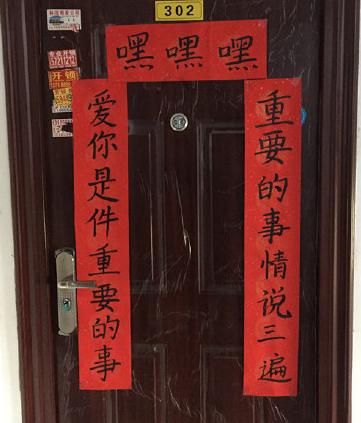 302
嘿嘿嘿
重要的事情说三遍
爱你是件重要的事
专业开锁
开锁